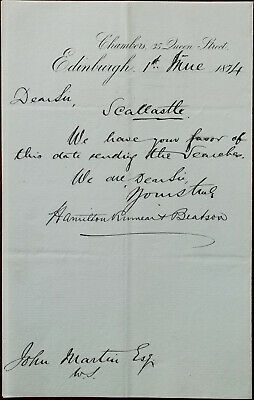 Chambers, 35 Queen Street.
Edinburgh. 1st June 1874
Dear Sir,
Scallastle.
We have your favor of
this date sending the Searches.
We are, Dear Sir,
Yours truly
Hamilton Kinnear & Beatson
John Martin Esq
W.S.